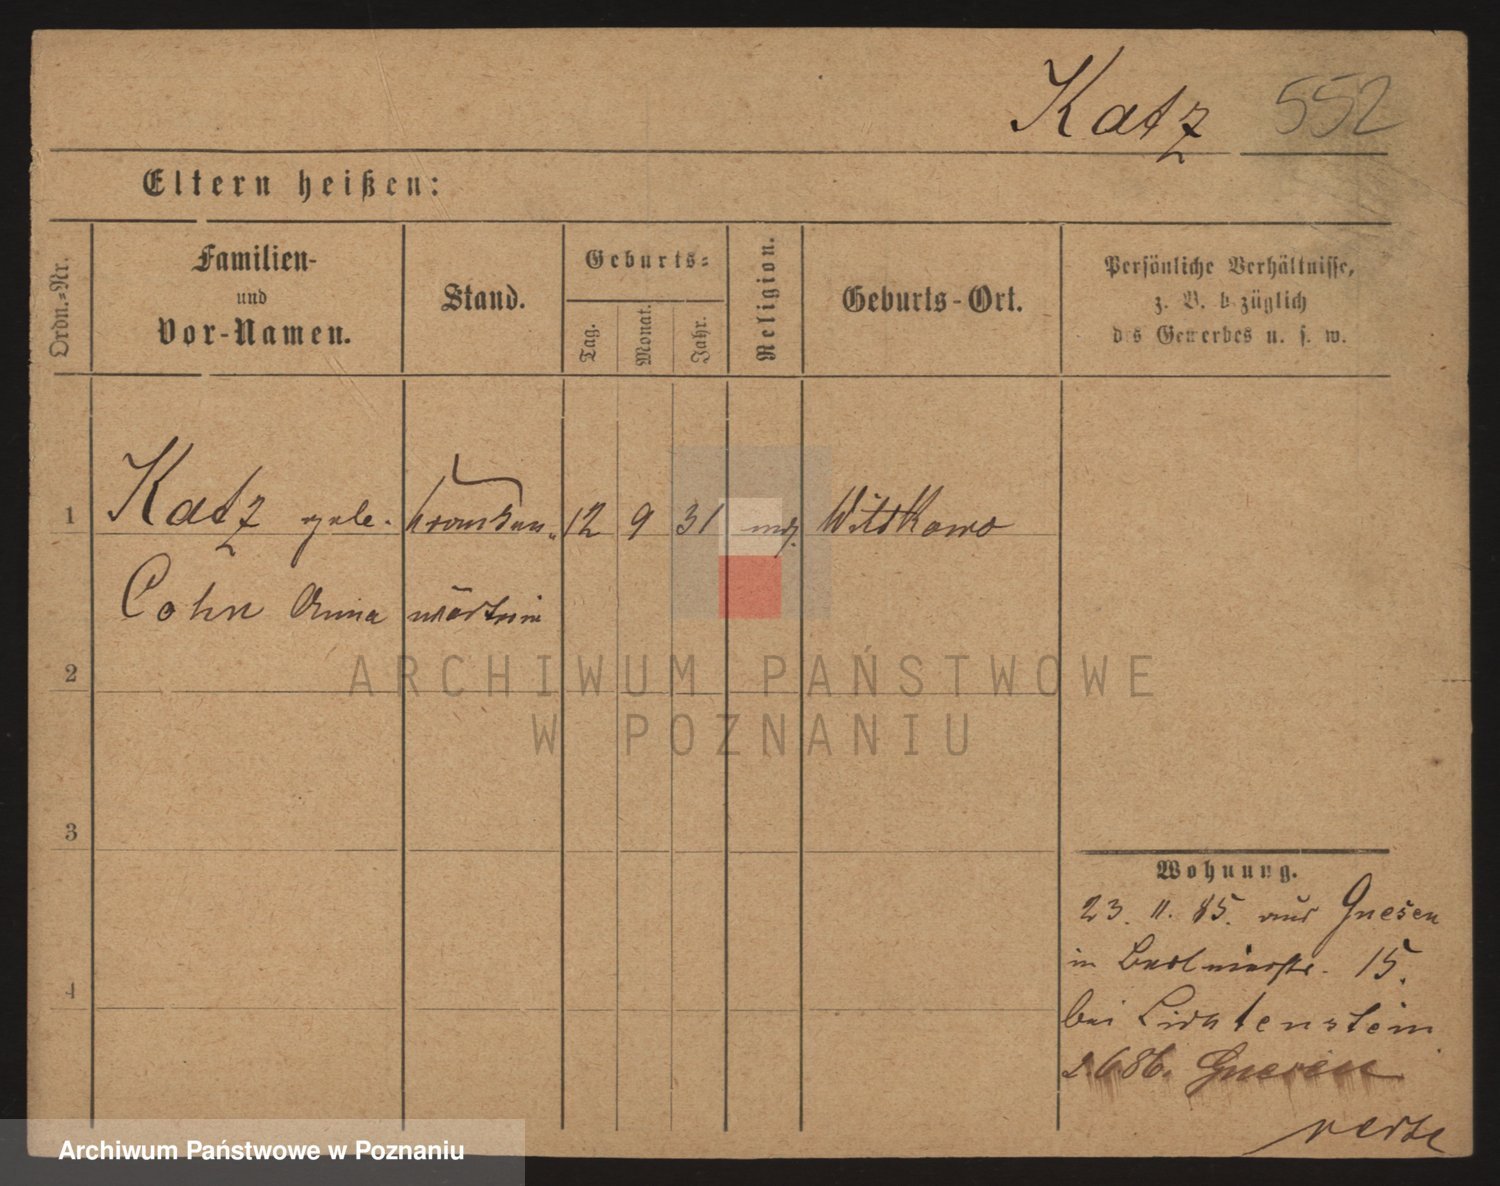 Katz 552
Eltern heißen:
Ordn.=Nr.
Familien-
und
Vor-Namen.
Stand.
Geburts=
Tag.
Monat.
Jahr.
Religion.
Geburts-Ort.
Persönliche Verhältnisse,
z. B. bezüglich
des Gewerbes u. s. w.
1 Katz gebe. Kranken 12 9 31 Witkowo
Cohn Anna wärterin
2
3
4
Wohnung.
23. 11. 85. aus Gnesen
in 15.
bei Lichtenstein
2.6 86. Gnesen
ARCHIWUM PAŃSTWOWE
W POZNANIU
Archiwum Państwowe w Poznaniu